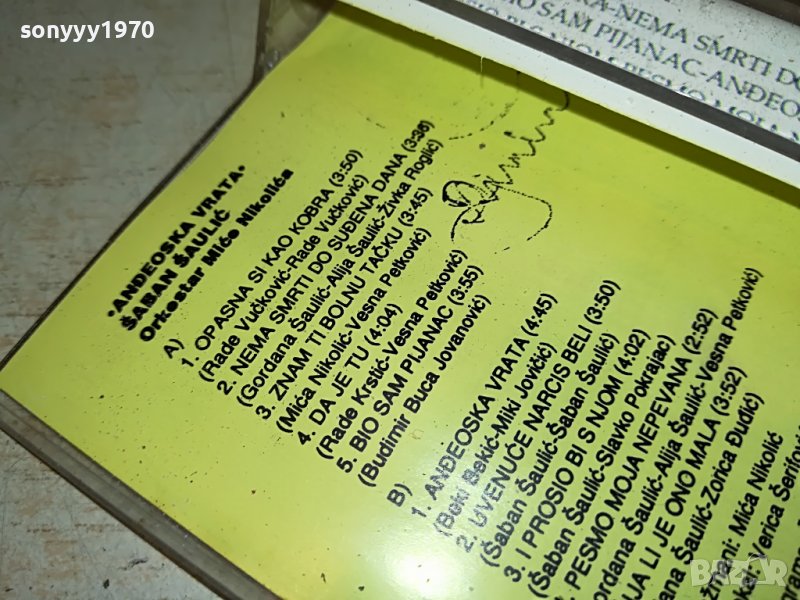 sonyyy1970
SAM PIJANAC-ANĐEOS
"ANĐEOSKA VRATA"
ŠABAN ŠAULIĆ
Orkestar Miće Nikolića
A)
1. OPASNA SI KAO KOBRA (3:50)
(Rade Vučković-Rade Vučković)
2. NEMA SMRTI DO SUĐENA DANA (3:36)
(Gordana Šaulić-Alija Šaulić-Živka Roglić)
3. ZNAM TI BOLNU TAČKU (3:45)
(Mića Nikolić-Vesna Petković)
4. DA JE TU (4:04)
(Rade Krstić-Vesna Petković)
5. BIO SAM PIJANAC (3:55)
(Budimir Buca Jovanović)
B)
1. ANĐEOSKA VRATA (4:45)
(Beki Bekić-Miki Jovičić)
2. UVENUĆE NARCIS BELI (3:50)
(Šaban Šaulić-Šaban Šaulić)
3. I PROSIO BI S NJOM (4:02)
(Šaban Šaulić-Slavko Pokrajac)
PESMO MOJA NEPEVANA (2:52)
ordana Šaulić-Alija Šaulić-Vesna Petković)
JA LI JE ONO MALA (3:52)
ana Šaulić-Zorica Đuđić)
Mića Nikolić
erica Šerifov
bazar